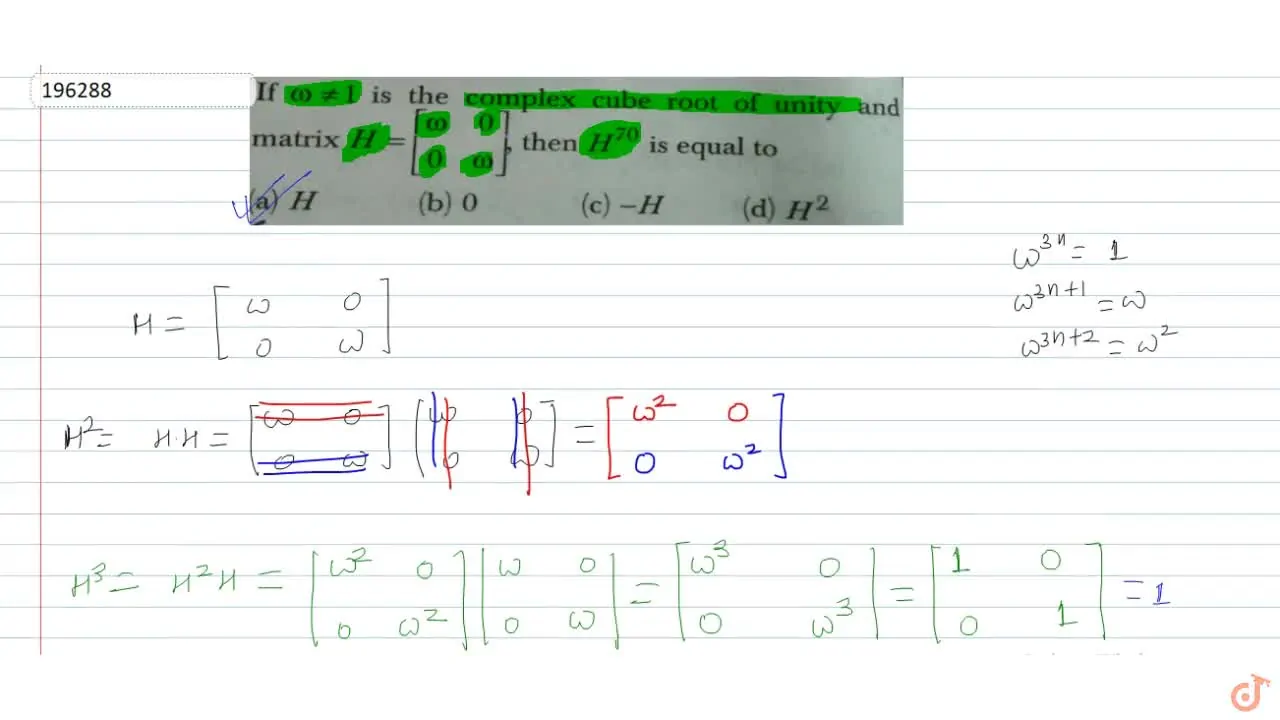 196288
If ω ≠ 1 is the complex cube root of unity and
matrix H = [ω 0; 0 ω], then H⁷⁰ is equal to
(a) H (b) 0 (c) −H (d) H²
ω³ⁿ = 1
ω³ⁿ⁺¹ = ω
ω³ⁿ⁺² = ω²
H = [ω 0; 0 ω]
H² = H.H = [ω 0; 0 ω] [ω 0; 0 ω] = [ω² 0; 0 ω²]
H³ = H²H = [ω² 0; 0 ω²] [ω 0; 0 ω] = [ω³ 0; 0 ω³] = [1 0; 0 1] = 1